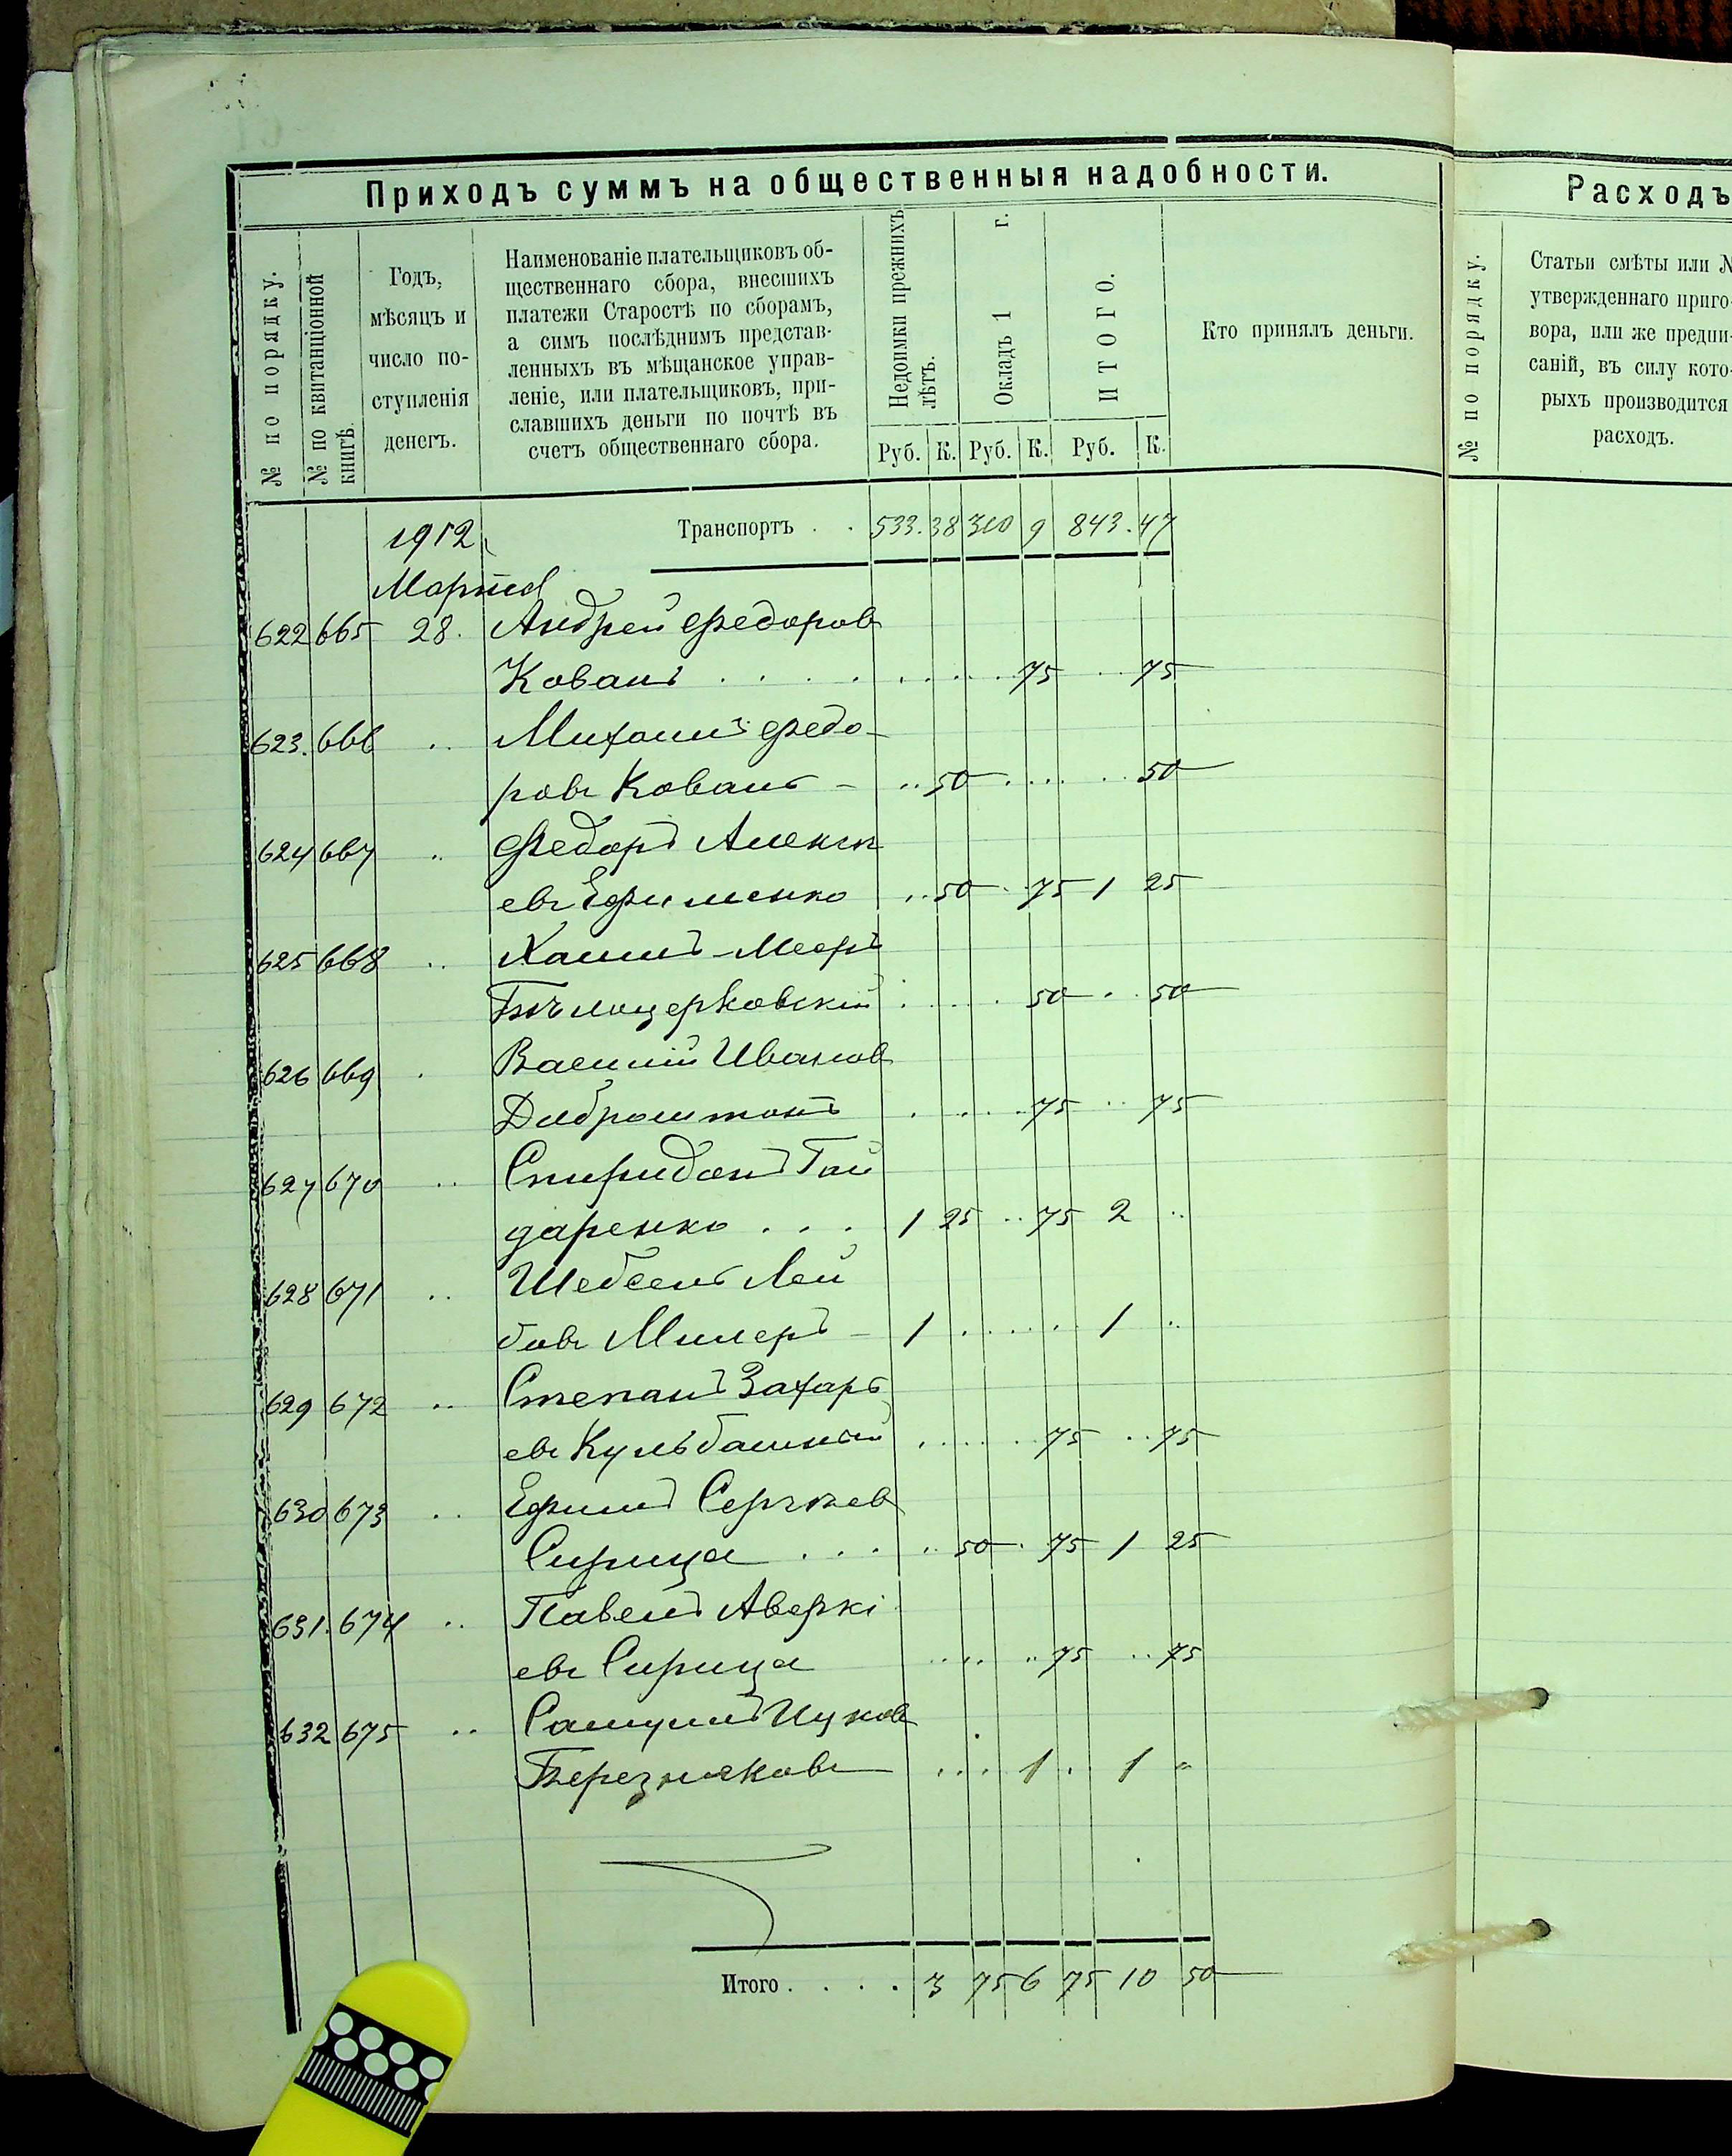 Приходъ суммъ на общественныя надобности.
№ по порядку.
№ по квитанціонной книгѣ.
Годъ, мѣсяцъ и число поступленія денегъ.
Наименованіе плательщиковъ об-
щественнаго сбора, внесшихъ
платежи Старостѣ по сборамъ,
а симъ послѣднимъ представ-
ленныхъ въ мѣщанское управ-
леніе, или плательщиковъ, при-
славшихъ деньги по почтѣ въ
счетъ общественнаго сбора.
Недоимки прежнихъ лѣтъ.
Окладъ 1 г.
ИТОГО.
Кто принялъ деньги.
Руб. К. Руб. К. Руб. К.
1912 Транспортъ . . 533. 38 310 9 843. 47
Марта
622 665 28. Андрей Федоров
Коваль . . . . 75 .. 75
623. 666 .. Михаилъ Федо-
ровъ Коваль - .. 50 .... 50
624 667 .. Федоръ Алексѣ
евъ Ефименко .. 50 .. 75 1 25
625 668 .. Хаимъ-Меръ
Бѣлоцерковскій 50 .. 50
626 669 . Василій Иванов
75 .. 75
627 670 .. Спиридонъ Гай
даренко . . . 1 25 .. 75 2 ..
628 671 .. Шебсель Лей
бовъ Милеръ - 1 ..... 1 ..
629 672 .. Степанъ Захарь
евъ Кульбашный 75 .. 75
630 673 .. Ефимъ Сергѣев
Сирица . . . .. 50 . 75 1 25
631. 674 .. Павелъ Аверкі
евъ Сирица .... .. 75 .. 75
632 675 .. Самуилъ Ицков
Березняковъ ... 1 . 1 "
Итого . . . . 3 75 6 75 10 50
Расходъ
№ по порядку.
Статьи смѣты или №
утвержденнаго приго-
вора, или же предпи-
саній, въ силу кото-
рыхъ производится
расходъ.